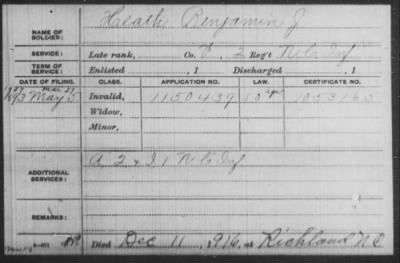 NAME OF SOLDIER: Heath Benjamin J
SERVICE: Late rank, Co. E, 2 Reg't N.C. Inf
TERM OF SERVICE: Enlisted , 1 Discharged , 1
DATE OF FILING. CLASS. APPLICATION NO. LAW. CERTIFICATE NO.
May 5 Invalid, 1150439
Widow,
Minor,
ADDITIONAL SERVICES: A, 2 & I, 1 N.C. Inf
REMARKS:
Died Dec 11, 1916, at Richland N C